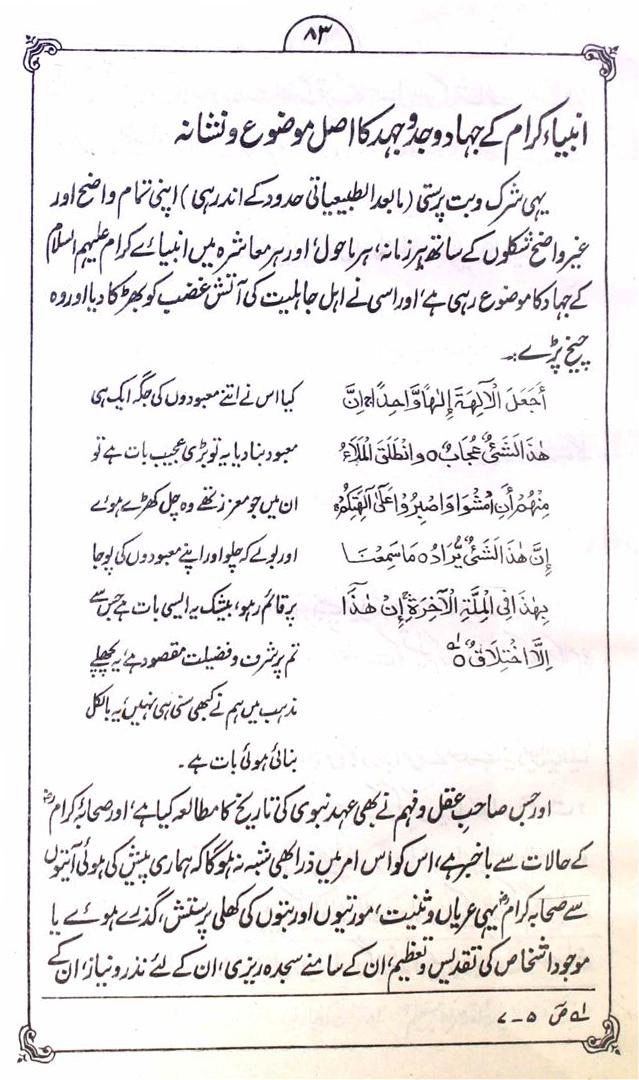 ۸۳
انبیاء کرام کے جہاد و جدوجہد کا اصل موضوع و نشانہ
یہی شرک و بت پرستی (مابعد الطبیعیاتی حدود کے اندر ہی) اپنی تمام واضح اور
غیر واضح شکلوں کے ساتھ ہر زمانہ، ہر ماحول، اور ہر معاشرہ میں انبیائے کرام علیہم السلام
کے جہاد کا موضوع رہی ہے، اور اسی نے اہل جاہلیت کی آتش غضب کو بھڑکا دیا اور وہ
چیخ پڑے:۔
أَجَعَلَ الْآلِهَةَ إِلٰهًا وَّاحِدًا ۚ إِنَّ
هٰذَا لَشَيْءٌ عُجَابٌ ٥ وَانْطَلَقَ الْمَلَأُ
مِنْهُمْ أَنِ امْشُوا وَاصْبِرُوا عَلٰى آلِهَتِكُمْ
إِنَّ هٰذَا لَشَيْءٌ يُّرَادُ ٥ مَا سَمِعْنَا
بِهٰذَا فِي الْمِلَّةِ الْآخِرَةِ ۚ إِنْ هٰذَا
إِلَّا اخْتِلَاقٌ ٥ لہ
کیا اس نے اتنے معبودوں کی جگہ ایک ہی
معبود بنا دیا یہ تو بڑی عجیب بات ہے تو
ان میں جو معزز تھے وہ چل کھڑے ہوئے
اور بولے کہ چلو اور اپنے معبودوں کی پوجا
پر قائم رہو، بیشک یہ ایسی بات ہے جس سے
تم پر شرف و فضیلت مقصود ہے، یہ پچھلے
مذہب میں ہم نے کبھی سنی ہی نہیں، یہ بالکل
بنائی ہوئی بات ہے۔
اور جس صاحب عقل و فہم نے بھی عہد نبوی کی تاریخ کا مطالعہ کیا ہے، اور صحابہ کرامؓ
کے حالات سے باخبر ہے، اس کو اس امر میں ذرا بھی شبہ نہ ہوگا کہ ہماری پیش کی ہوئی آیتوں
سے صحابہ کرامؓ یہی عریاں وثنیت، مورتیوں اور بتوں کی کھلی پرستش، گذرے ہوئے یا
موجود اشخاص کی تقدیس و تعظیم، ان کے سامنے سجدہ ریزی، ان کے لئے نذر و نیاز، ان کے
لہ ص ۵-۷